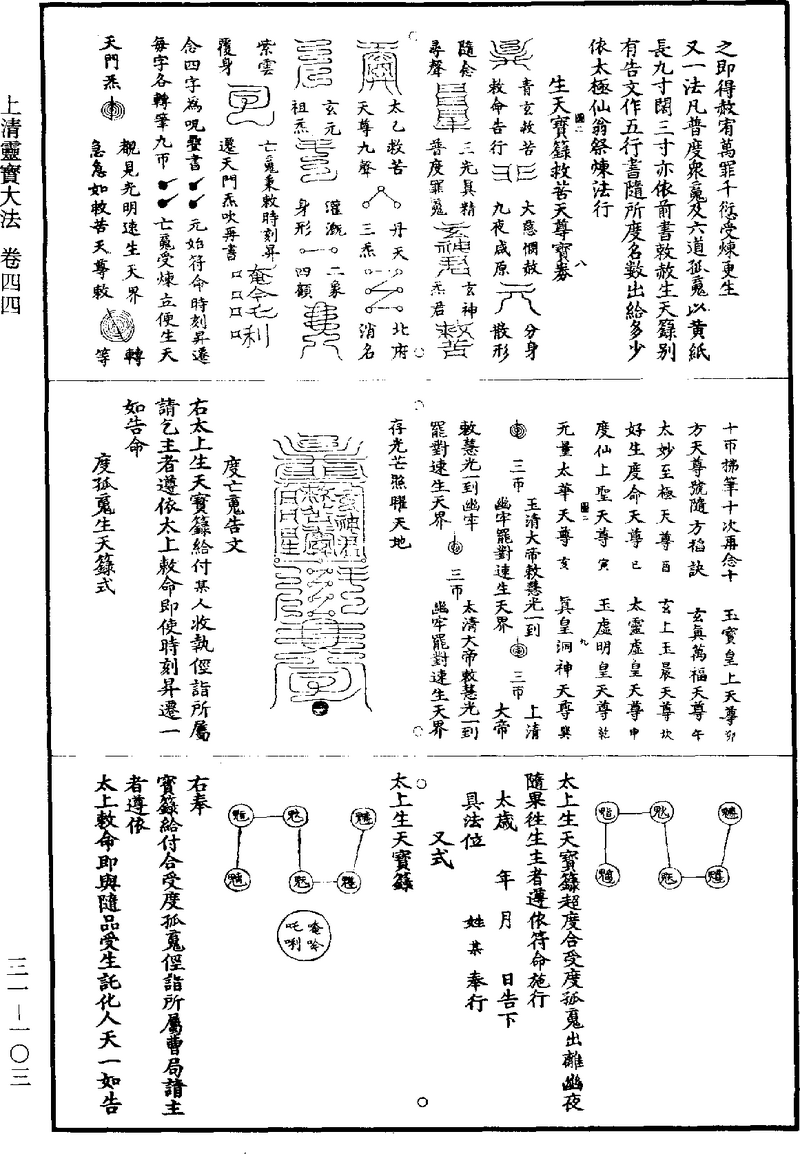 之即得赦宥萬罪千愆受煉更生
又一法凡普度衆䰟及六道孤䰟以黄紙
長九寸闊三寸亦依前書敕赦生天籙别
有告文作五行書隨所度名數出給多少
依太極仙翁祭煉法行
生天寳籙救苦天尊寳券
圖二 八
青玄救苦
敕命告行
大慈憫赦
九夜咸原
分身
散形
隨念
尋聲
三光真精
普度罪䰟
玄神
炁君
太乙救苦
天尊九聲
丹天
三炁
北府
消名
玄元
祖炁
灌溉
身形
二象
四顧
紫雲
覆身
亡䰟乘敕時刻昇
遷天門炁吹再書
唵令吒利
念四字爲呪疊書
每字各轉筆九帀
元始符命時刻昇遷
亡䰟受煉立便生天
天門炁
觀見光明速生天界
急急如救苦天尊敕
轉
等
十帀拂筆十次再念十
方天尊號隨方掐訣
玉寳皇上天尊卯
玄真萬福天尊午
太妙至極天尊酉
玄上玉晨天尊坎
好生度命天尊巳
太靈虚皇天尊申
度仙上聖天尊寅
玉虚明皇天尊乾
圖二 九
元量太華天尊亥
真皇洞神天尊巽
三帀
玉清大帝敕慧光一到
幽牢罷對速生天界
三帀
上清
大帝
敕慧光一到幽牢
罷對速生天界
三帀
太清大帝敕慧光一到
幽牢罷對速生天界
存光芒照曜天地
度亡䰟告文
右太上生天寳籙給付某人收執徑詣所屬
請乞主者遵依太上敕命即使時刻昇遷一
如告命
度孤䰟生天籙式
太上生天寳籙超度合受度孤䰟出離幽夜
隨果往生主者遵依符命施行
太歲 年 月 日告下
具法位 姓某奉行
又式
太上生天寳籙
唵吽
吒唎
右奉
寳籙給付合受度孤䰟徑詣所屬曹局請主
者遵依
太上敕命即與隨品受生託化人天一如告
上清靈寶大法 卷四四
三一—一〇三